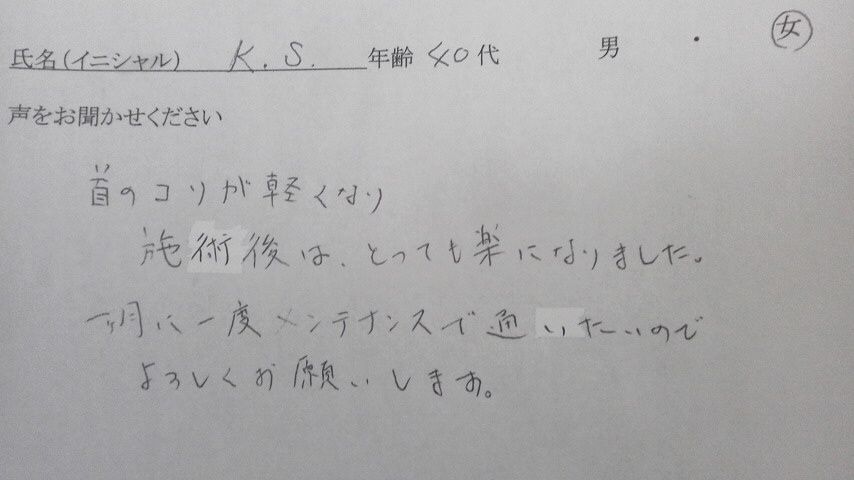 氏名(イニシャル) K.S. 年齢 40代 男 ・ 女
声をお聞かせください
首のコリが軽くなり
施術後は、とっても楽になりました。
一ヶ月に一度メンテナンスで通いたいので
よろしくお願いします。